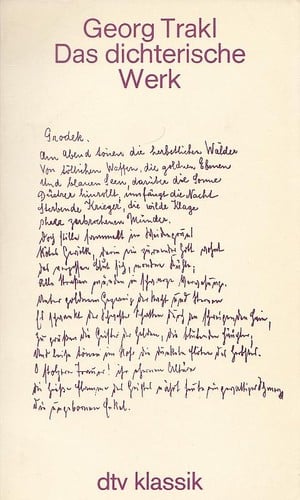 Georg Trakl
Das dichterische
Werk
Grodek.
Am Abend tönen die herbstlichen Wälder
Von tötlichen Waffen, die goldnen Ebenen
Und blauen Seen, darüber die Sonne
Düstrer hinrollt; umfängt die Nacht
Sterbende Krieger, die wilde Klage
Ihrer zerbrochenen Münder.
Doch stille sammelt im Weidengrund
Rotes Gewölk, darin ein zürnender Gott wohnt
Das vergossne Blut sich, mondne Kühle;
Alle Straßen münden in schwarze Verwesung.
Unter goldnem Gezweig der Nacht und Sternen
Es schwankt der Schwester Schatten durch den schweigenden Hain,
Zu grüßen die Geister der Helden, die blutenden Häupter;
Und leise tönen im Rohr die dunkeln Flöten des Herbstes.
O stolzere Trauer! ihr ehernen Altäre
Die heiße Flamme des Geistes nährt heute ein gewaltiger Schmerz,
Die ungebornen Enkel.
dtv klassik